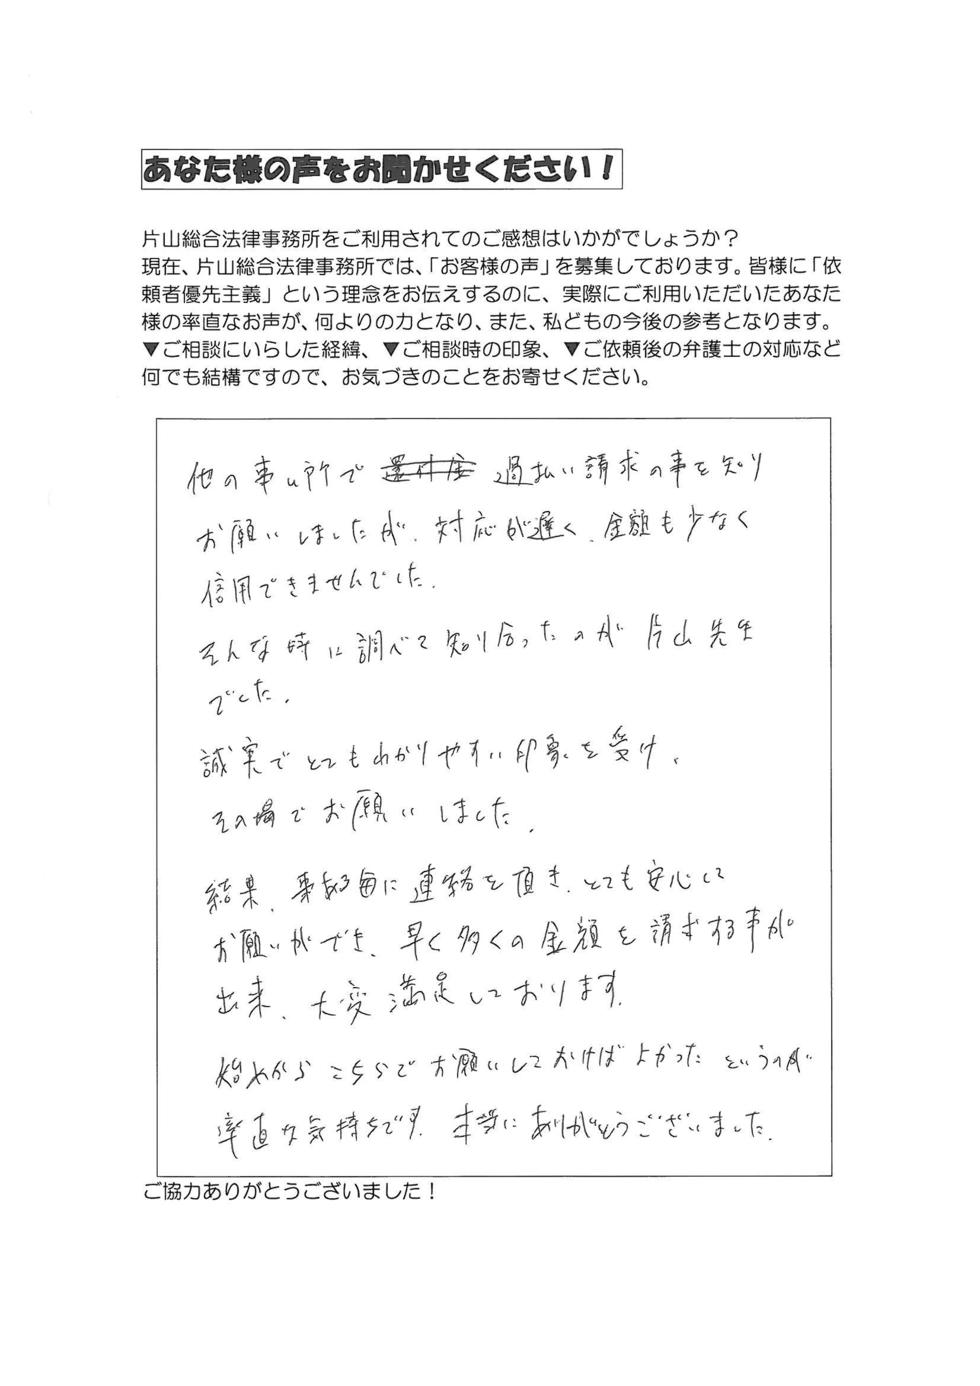 あなた様の声をお聞かせください！
片山総合法律事務所をご利用されてのご感想はいかがでしょうか？
現在、片山総合法律事務所では、「お客様の声」を募集しております。皆様に「依
頼者優先主義」という理念をお伝えするのに、実際にご利用いただいたあなた
様の率直なお声が、何よりの力となり、また、私どもの今後の参考となります。
▼ご相談にいらした経緯、▼ご相談時の印象、▼ご依頼後の弁護士の対応など
何でも結構ですので、お気づきのことをお寄せください。
他の事ム所で 過払い請求の事を知り
お願いしましたが、対応が遅く、金額も少なく
信用できませんでした。
そんな時に調べて知り合ったのが片山先生
でした。
誠実でとてもわかりやすい印象を受け、
その場でお願いしました。
結果、事ある毎に連絡を頂き、とても安心して
お願いができ、早く多くの金額を請求する事が
出来、大変満足しております。
始めからこちらでお願いしておけばよかったというのが
率直な気持ちです。本当にありがとうございました。
ご協力ありがとうございました！